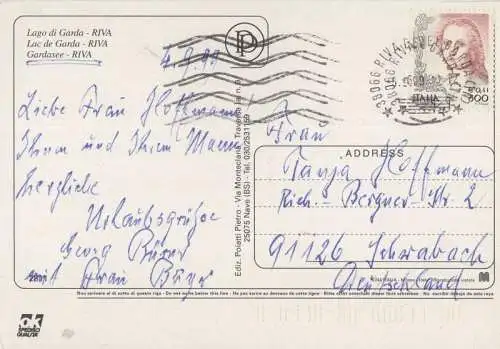 Lago di Garda - RIVA
Lac de Garda - RIVA
Gardasee - RIVA
4.9.99
Liebe Frau Hoffmann!
Ihnen und Ihrem Mann
herzliche
Urlaubsgrüße
Georg
mit Frau
Ediz. Poiatti Pietro - Via Monteclana - Traversa
25075 Nave (BS) - Tel. 030/2531159
38066 RIVA
ITALIA
€0,41
800
ADDRESS
Frau
Tanja Hoffmann
Rich.-Bergner-Str. 2
91126 Schwabach
Deutschland
Non scrivere al di sotto di questa riga - Do not write below this line - Ne pas écrire au dessous de cette ligne - Bitte nicht unterhalb dieser Linie schreiben - No escribir debajo de esta raya